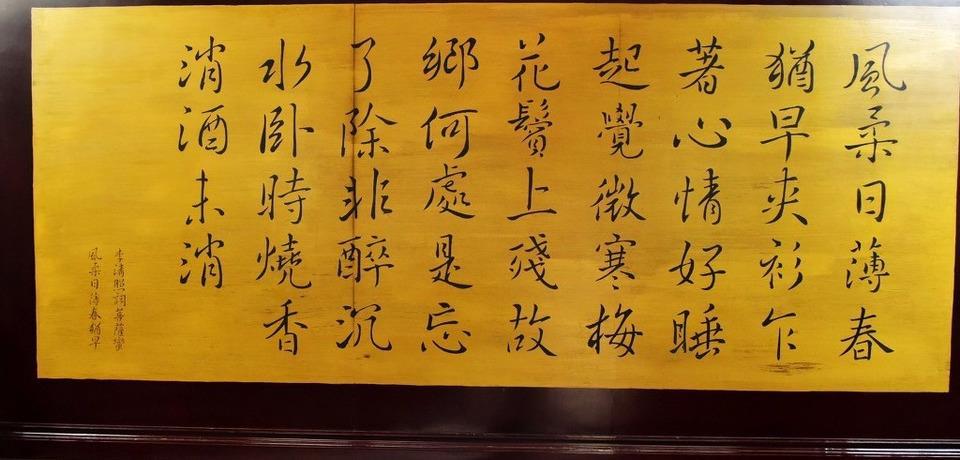 風柔日薄春
猶早夾衫乍
著心情好睡
起覺微寒梅
花鬢上殘故
鄉何處是忘
了除非醉沉
水卧時燒香
消酒未消
李清照詞菩薩蠻
風柔日薄春猶早